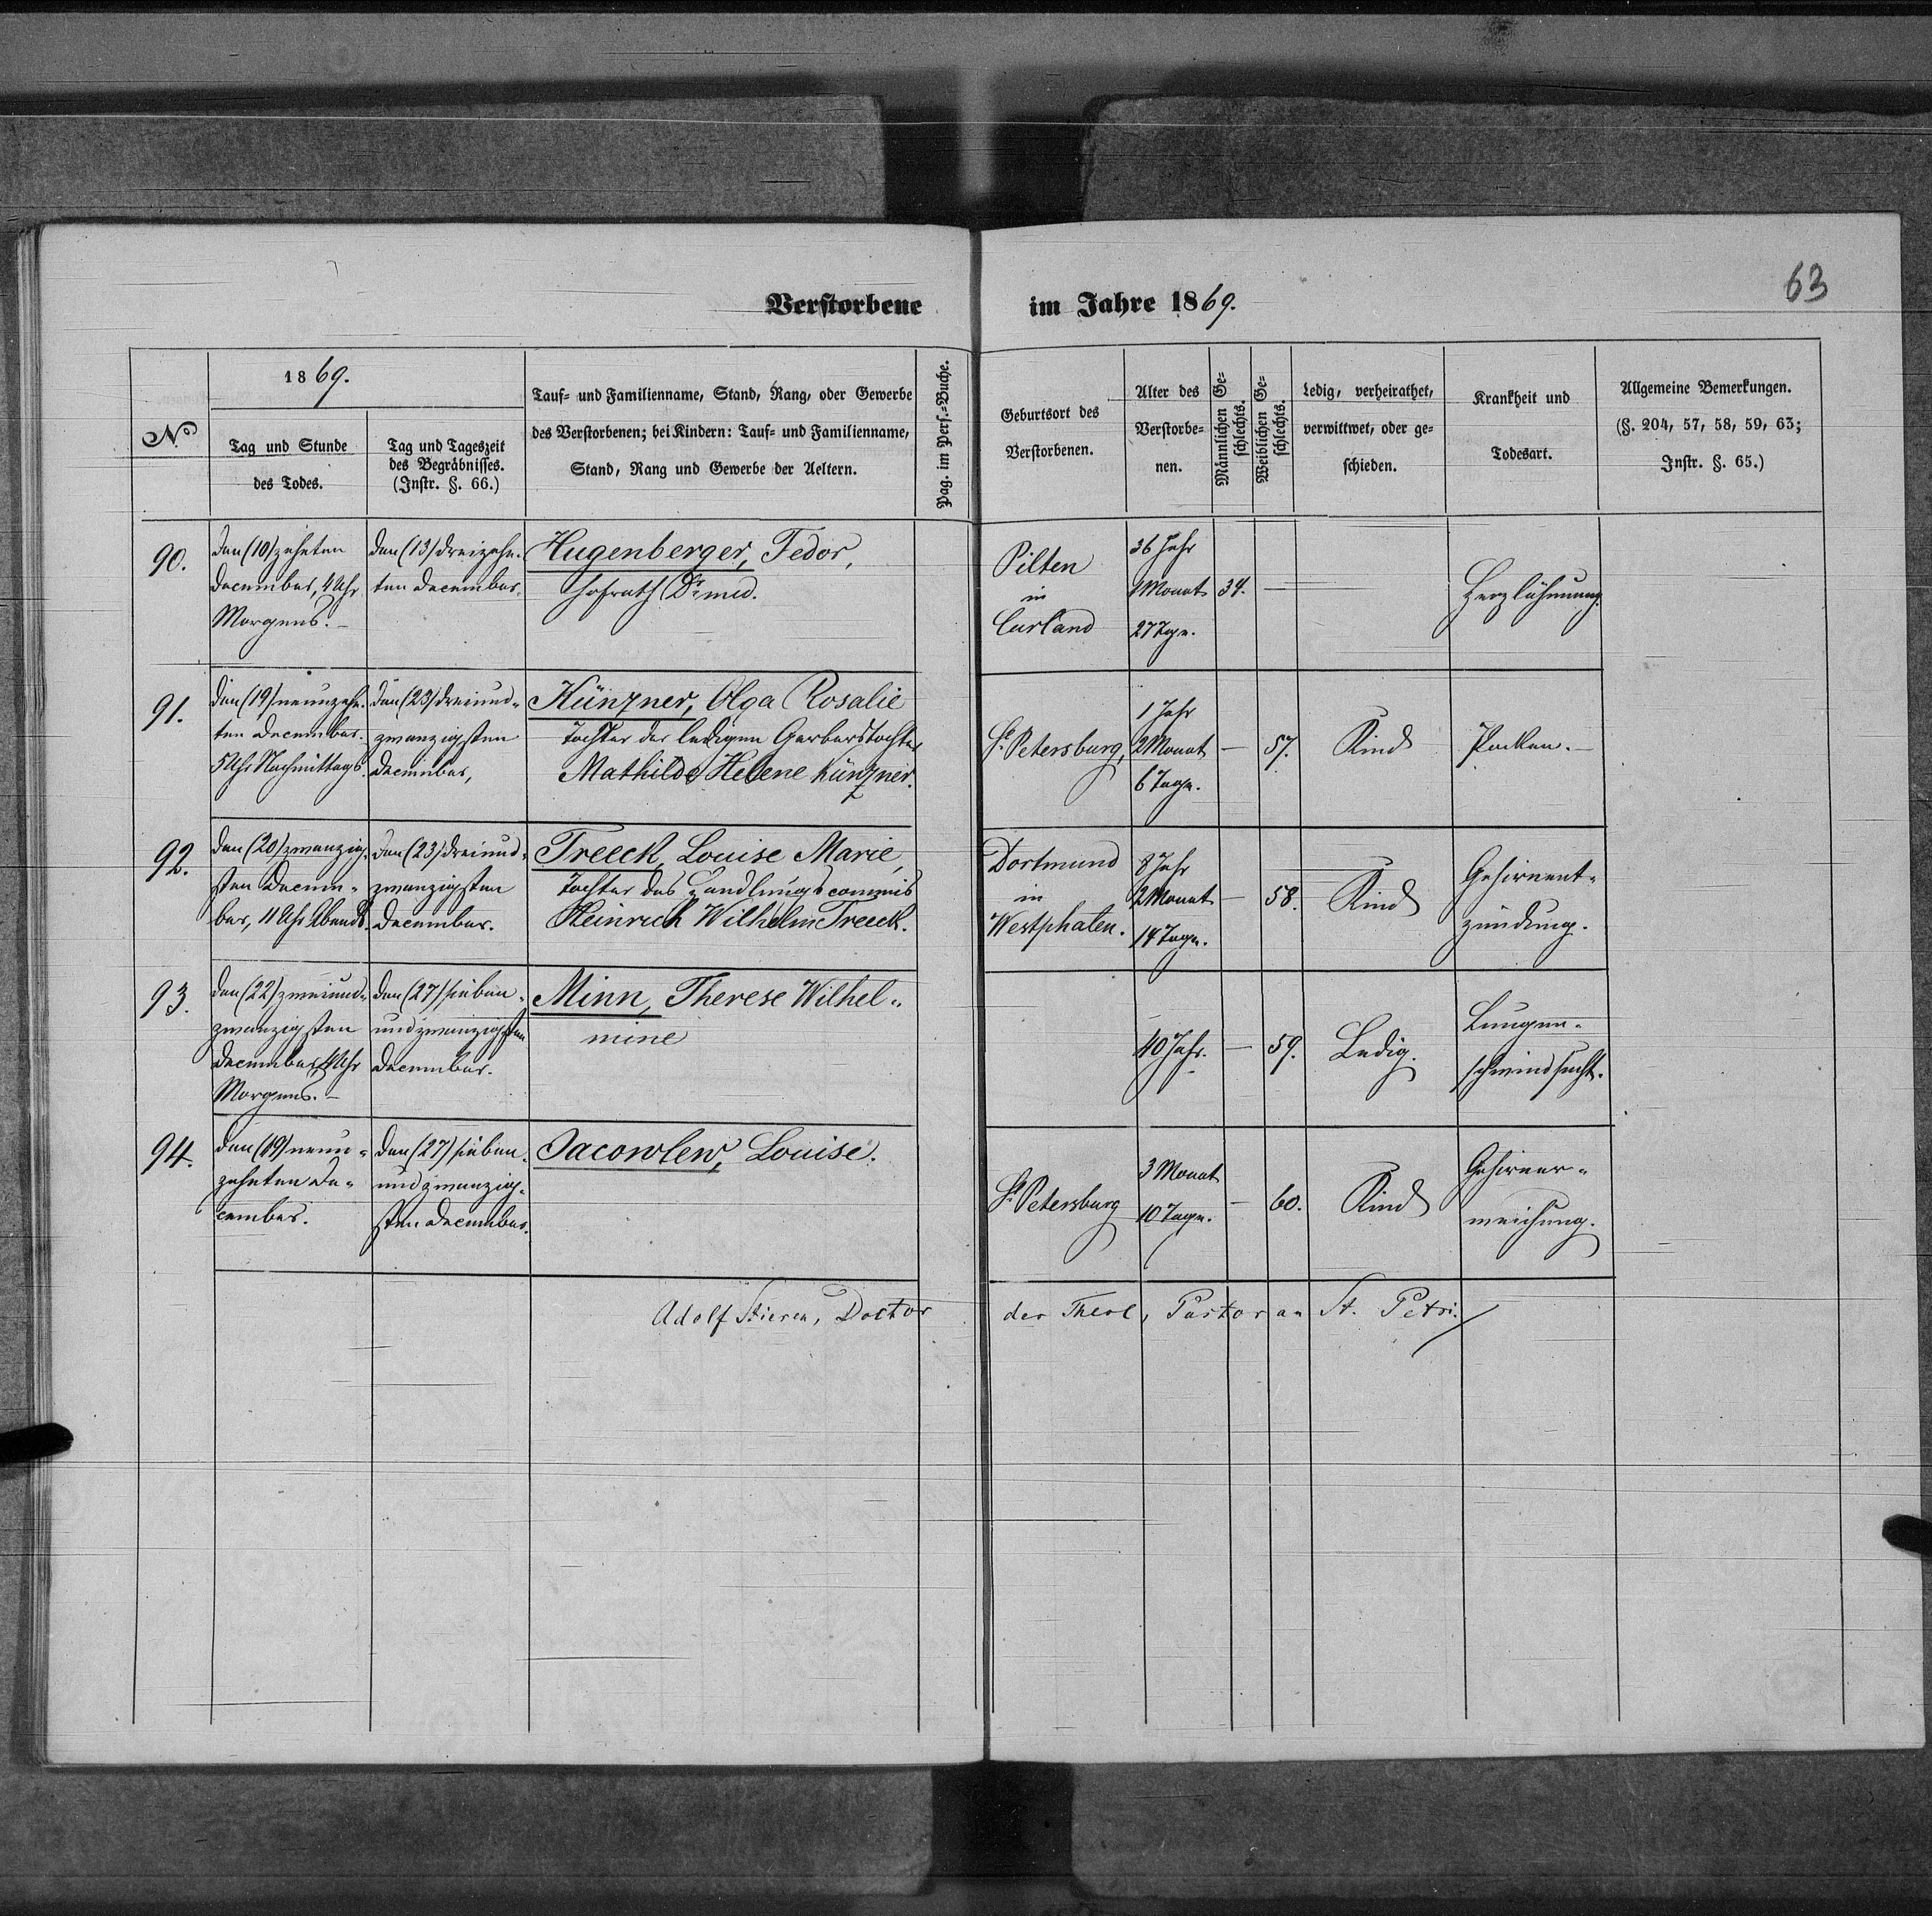 63
Verstorbene im Jahre 1869.
No
1869.
Tag und Stunde
des Todes.
Tag und Tageszeit
des Begräbnisses.
(Instr. §. 66.)
Tauf- und Familienname, Stand, Rang, oder Gewerbe
des Verstorbenen; bei Kindern: Tauf- und Familienname,
Stand, Rang und Gewerbe der Aeltern.
Pag. im Pers.-Buche.
Geburtsort des
Verstorbenen.
Alter des
Verstorbe-
nen.
Männlichen Ge-
schlechts.
Weiblichen Ge-
schlechts.
Ledig, verheirathet,
verwittwet, oder ge-
schieden.
Krankheit und
Todesart.
Allgemeine Bemerkungen.
(§. 204, 57, 58, 59, 63;
Instr. §. 65.)
90.
Den (10) zehnten
December, 4 Uhr
Morgens. –
Den (13) dreizehn-
ten December.
Hugenberger, Fedor,
Hofrath Dr med.
Pilten
in
Curland
36 Jahr
Monat
27 Tage.
34.
—
Herzlähmung.
91.
Den (19) neunzehn-
ten December.
5 Uhr Nachmittags.
Den (23) dreiund-
zwanzigsten
December,
Künzner, Olga Rosalie
Tochter der ledigen Gerberstochter
Mathilde Helene Künzner.
St. Petersburg,
1 Jahr
2 Monat
6 Tage.
—
57.
Kind
Pocken. –
92.
Den (20) zwanzig-
sten Decem-
ber, 11 Uhr Abends.
Den (23) dreiund-
zwanzigsten
December.
Treeck, Louise Marie,
Tochter des Handlungscommis
Heinrich Wilhelm Treeck.
Dortmund
in
Westphalen.
8 Jahr
2 Monat
14 Tage.
—
58.
Kind
Gehirnent-
zündung.
93.
Den (22) zweiund-
zwanzigsten
December, Uhr
Morgens. –
Den (27) sieben-
undzwanzigsten
December.
Minn, Therese Wilhel-
mine
40 Jahr.
—
59.
Ledig.
Lungen-
schwindsucht.
94.
Den (19) neun-
zehnten De-
cember.
Den (27) sieben-
undzwanzig-
sten December.
Jacowlew, Louise.
St. Petersburg
3 Monat
10 Tage.
—
60.
Kind
Gehirner-
weichung.
Adolf Stieren, Doctor der Theol, Pastor an St. Petri.